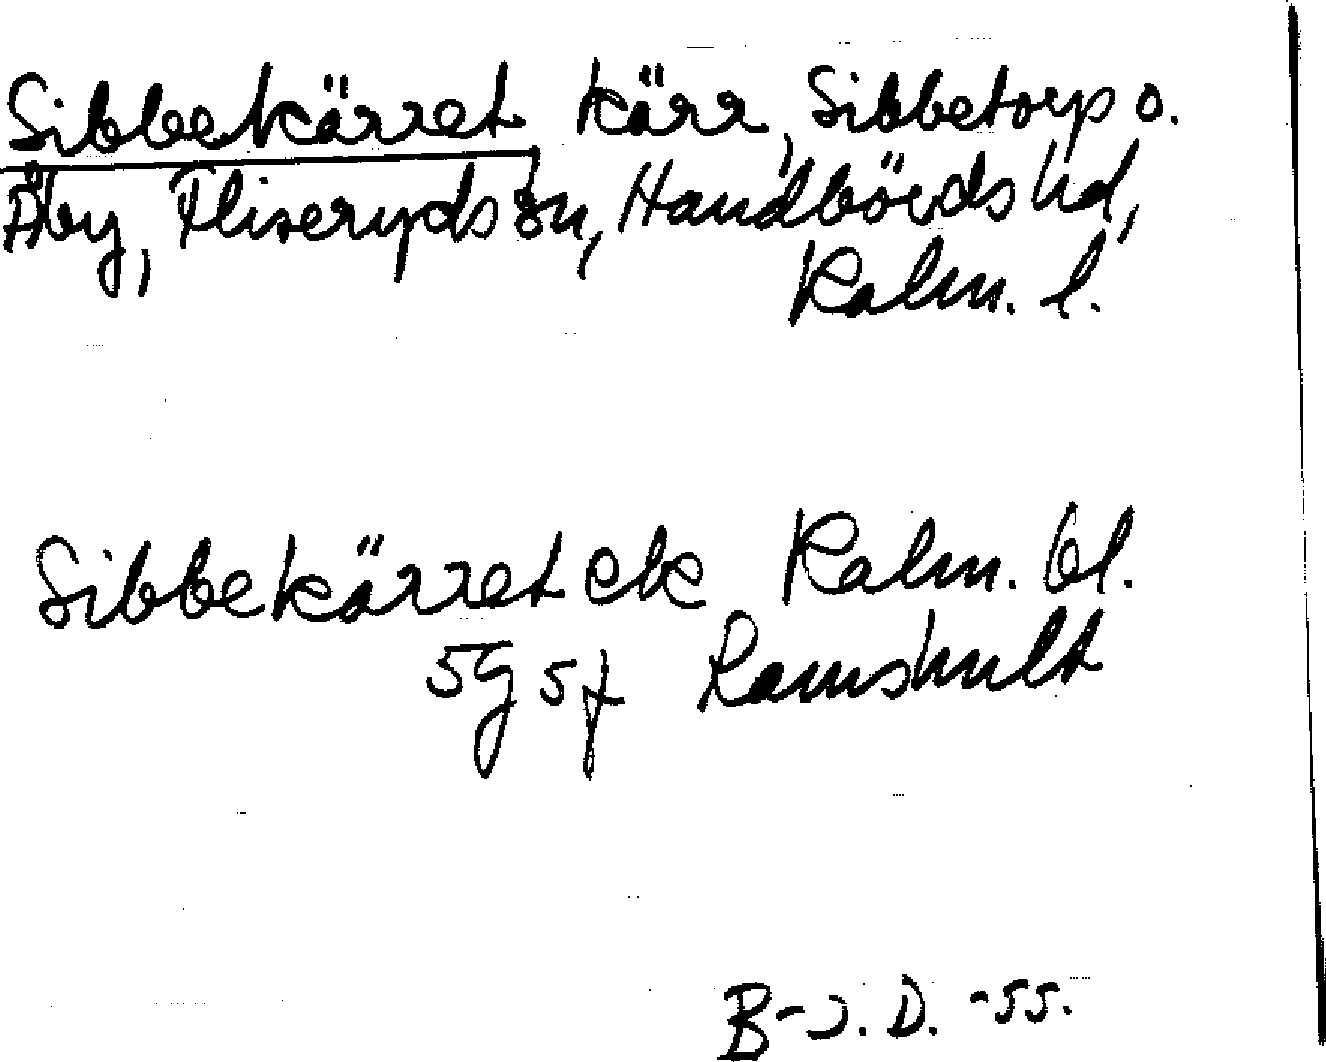 Sibbekärret kärr, Sibbetorp o.
Åby, Fliseryds sn, Handbörds hd,
Kalm. l.
Sibbekärret ek Kalm. bl.
5g 5f Ramshult
B-J. D. -55.